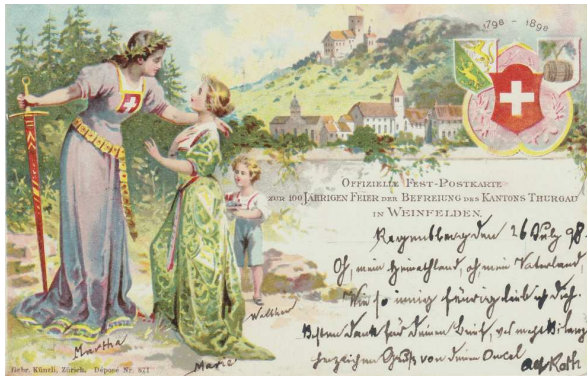 1798 - 1898
OFFIZIELLE FEST-POSTKARTE
ZUR 100 JÄHRIGEN FEIER DER BEFREIUNG DES KANTONS THURGAU
IN WEINFELDEN.
Regensberg den 26 July 98.
Oh, mein Heimathland, oh mein Vaterland
Wie so innig feurig lieb ich dich
Besten Dank für deinen Brief,
herzlichen Gruß von deinem Onkel
Roth
Walther
Martha
Marie
Gebr. Künzli, Zürich. Déposé Nr. 871